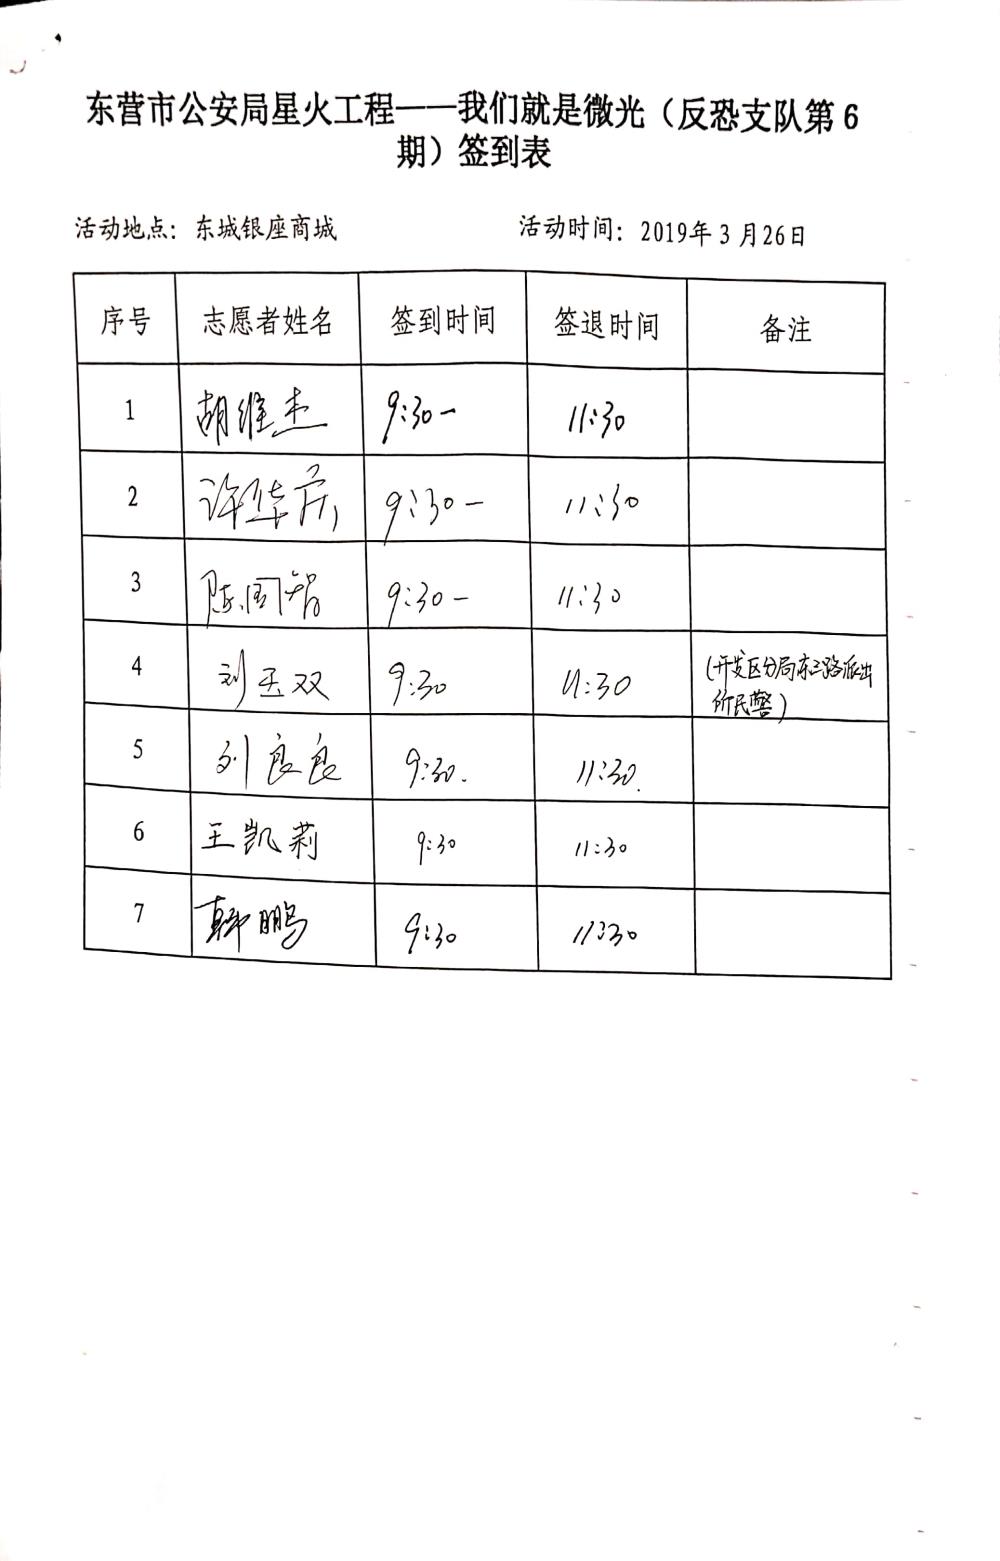 东营市公安局星火工程——我们就是微光（反恐支队第 6
期）签到表
活动地点：东城银座商城 活动时间：2019年 3 月26日
序号 志愿者姓名 签到时间 签退时间 备注
1 胡维杰 9:30- 11:30
2 许华庆 9:30- 11:30
3 陈国智 9:30- 11:30
4 刘玉双 9:30 11:30 (开发区分局东三路派出
所民警)
5 刘良良 9:30. 11:30.
6 王凯莉 9:30 11:30
7 韩鹏 9:30 11:30